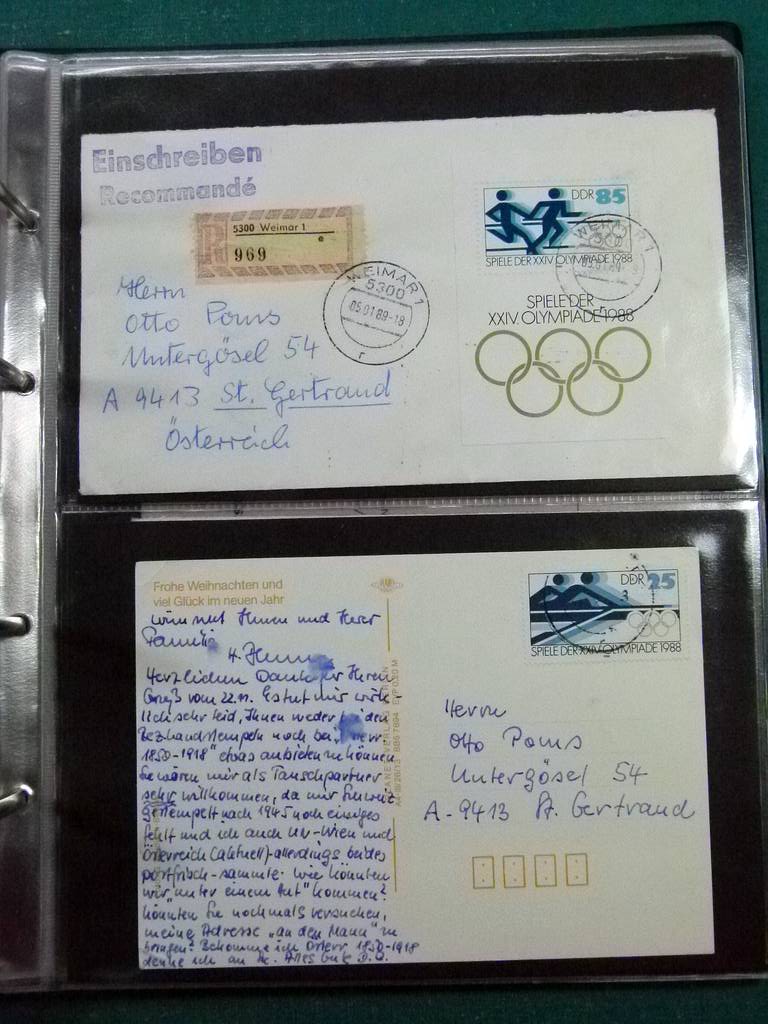 Einschreiben
Recommandé
R
5300 Weimar 1
e
969
WEIMAR 1
5300
05.01.89-18
r
DDR 85
SPIELE DER XXIV. OLYMPIADE 1988
WEIMAR 1
SPIELE DER
XXIV. OLYMPIADE 1988
Herrn
Otto Poms
Untergösel 54
A 9413 St. Gertraud
Österreich
Frohe Weihnachten und
viel Glück im neuen Jahr
wünscht Ihnen und Ihrer
Familie
H.
Herzlichen Dank für Ihren
Gruß vom 22.11. Es tut mir wirk-
lich sehr leid, Ihnen weder bei den
Bezhandstempeln noch bei "Österr
1850-1918" etwas anbieten zu können
Sie wären mir als Tauschpartner
sehr willkommen, da mir Schweiz
gestempelt nach 1945 noch einiges
fehlt und ich auch UN-Wien und
Österreich (aktuell) - allerdings beides
postfrisch - sammle. Wie könnten
wir "unter einem Hut" kommen?
Könnten Sie nochmals versuchen,
meine Adresse "an den Mann" zu
bringen? Bekomme ich Österr. 1850-1918
denke ich an Sie. Alles Gute D.O.
DDR 25
SPIELE DER XXIV. OLYMPIADE 1988
Herrn
Otto Poms
Untergösel 54
A-9413 St. Gertraud